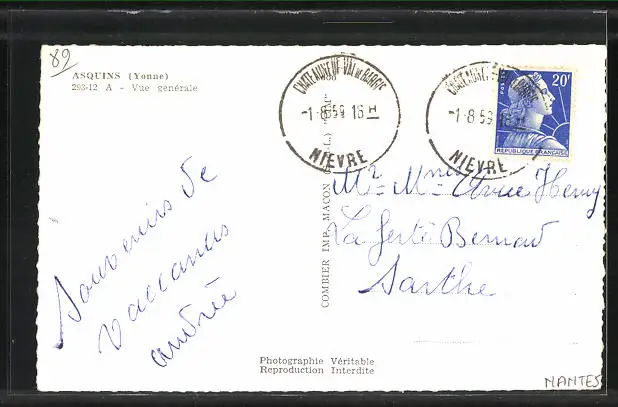 89
ASQUINS (Yonne)
293-12 A - Vue générale
CHATEAUNEUF-VAL DE BARGIS
-1-8 59 16 H
NIEVRE
-1-8 59
NIEVRE
20F
POSTES
REPUBLIQUE FRANÇAISE
COMBIER IMP. MACON
Souvenirs de
vaccances
andrée
Mr= Mme= Henry
La ferté Bernard
Sarthe
Photographie Véritable
Reproduction Interdite
NANTES